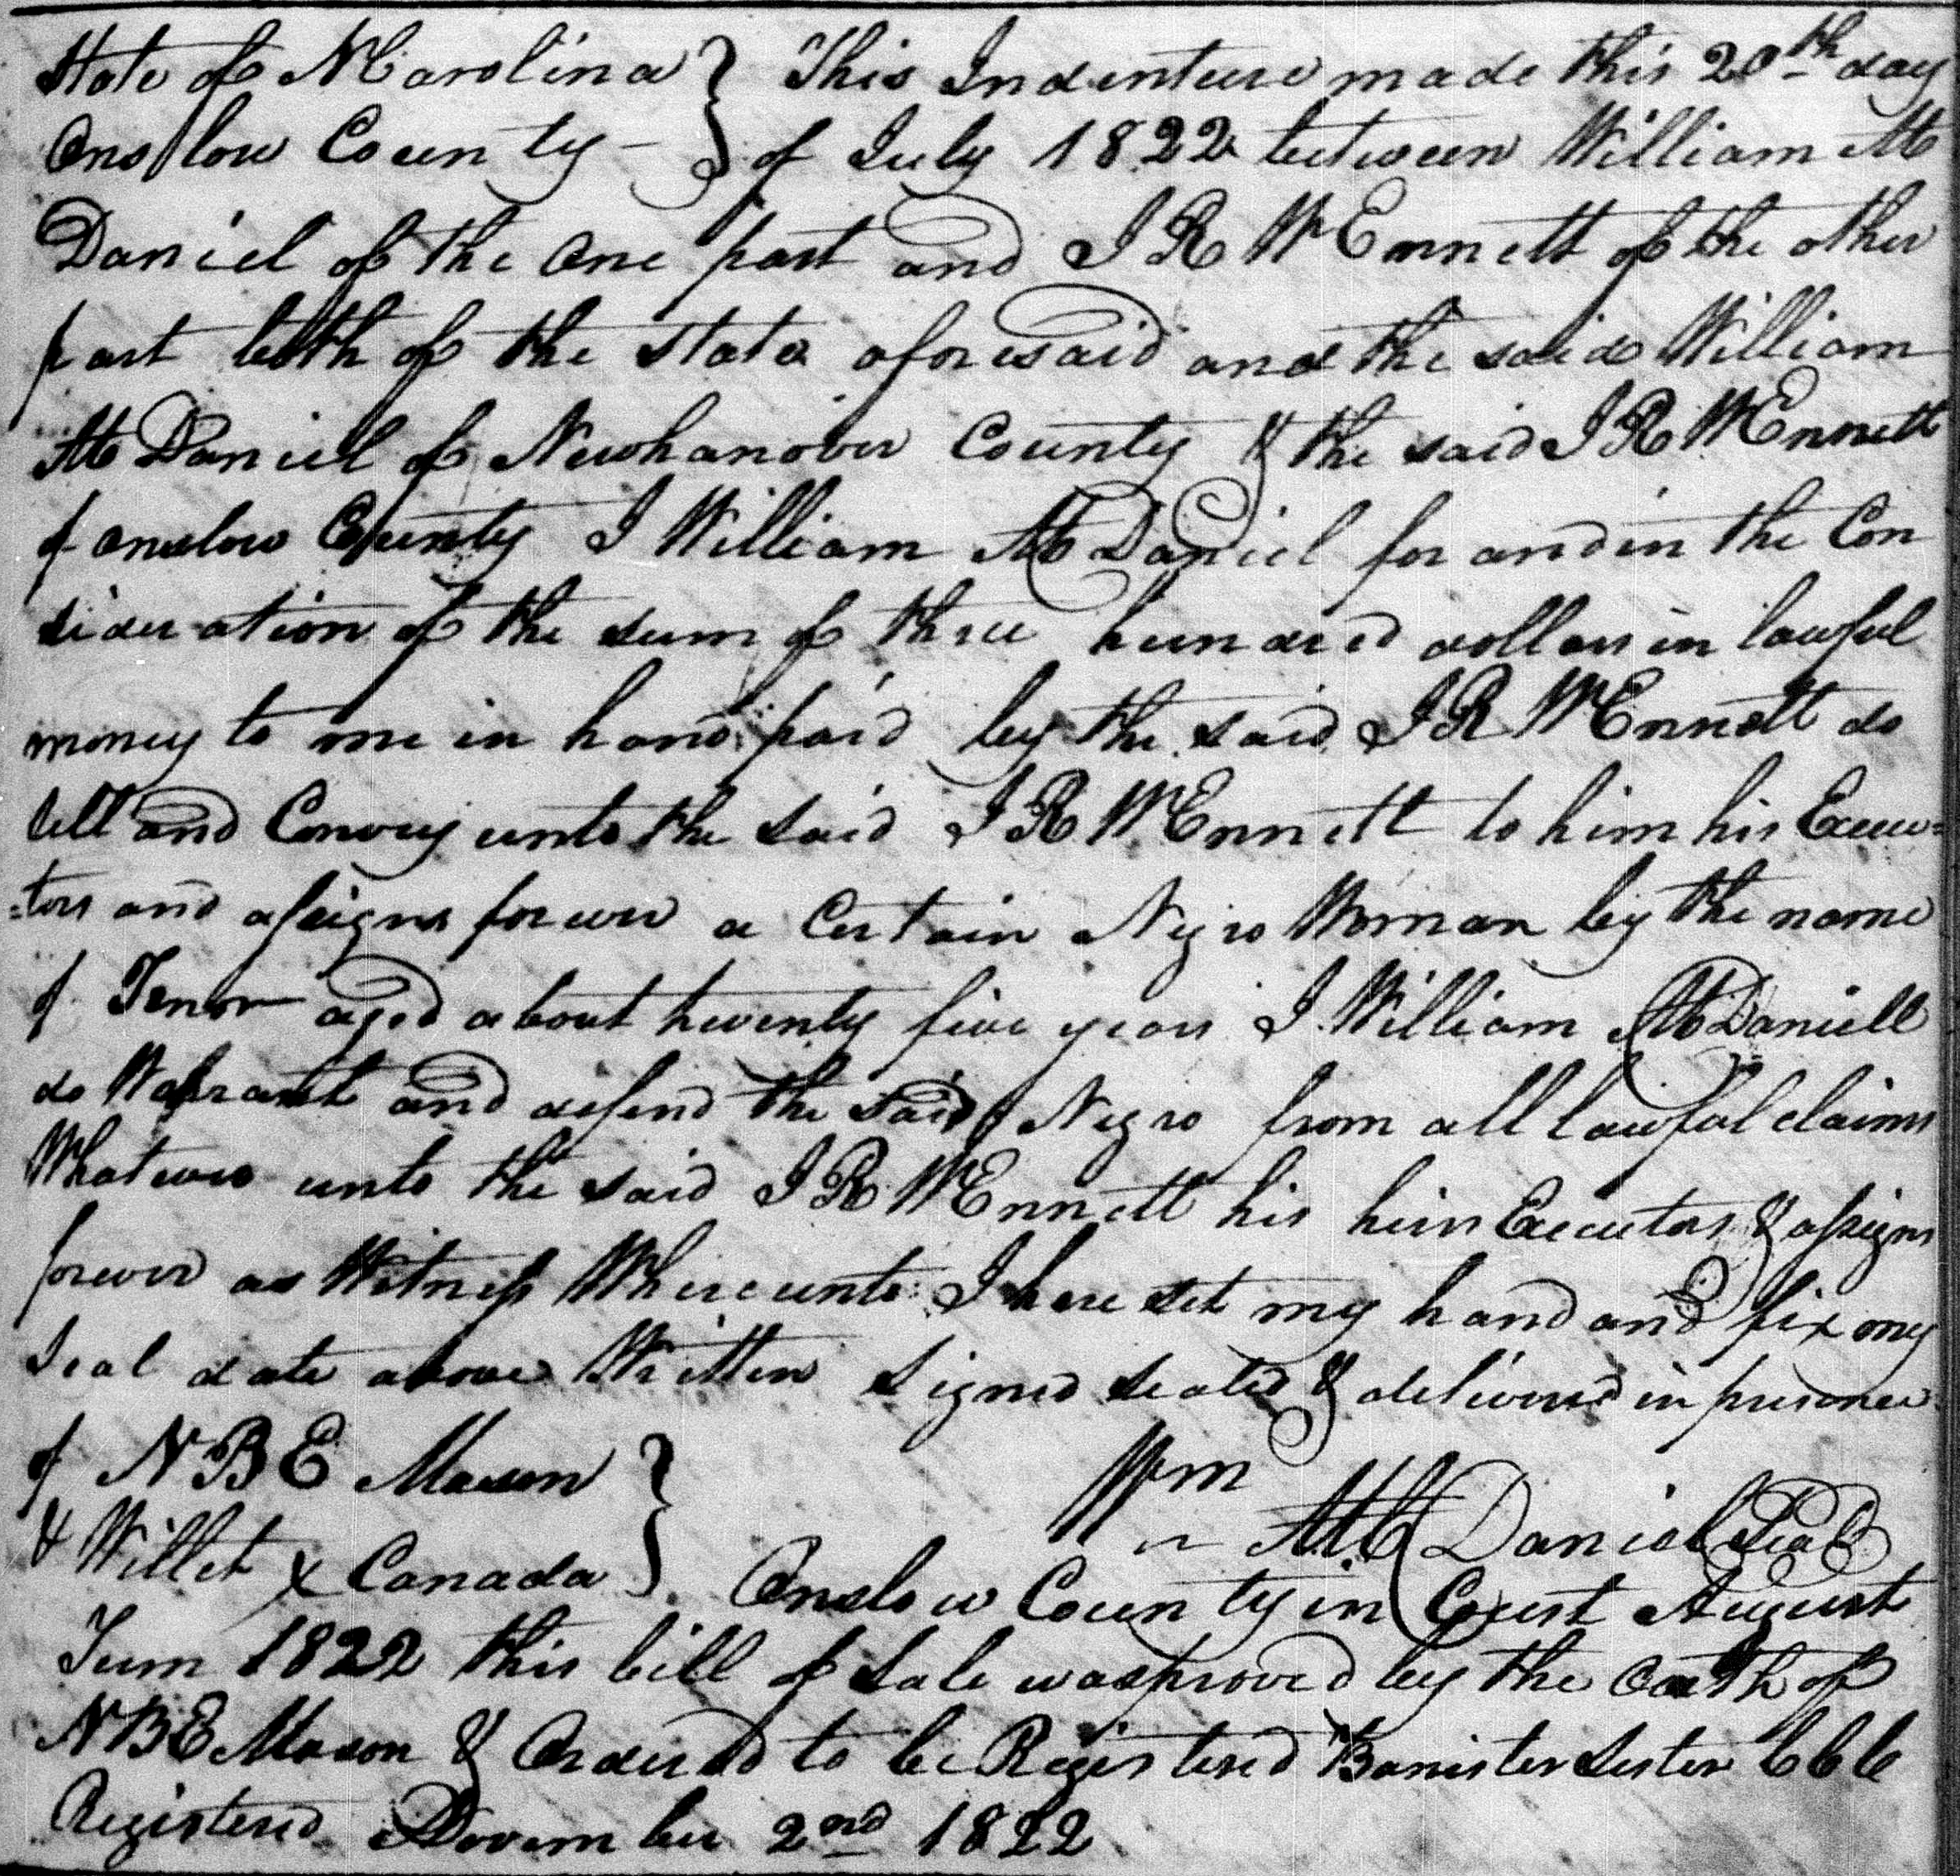 State of N Carolina } This Indenture made this 20th day
Onslow County – } of July 1822 between William Mc
Daniel of the one part and J R W Ennett of the other
part both of the State aforesaid and the said William
Mc Daniel of Newhanover County & the said J R W Ennett
of onslow County I William Mc Daniel for and in the Con
sideration of the sum of three hundred dollars in lawful
money to me in hand paid by the said J R W Ennett do
sell and Convey unto the said J R W Ennett to him his Execu=
=tors and assigns forever a Certain Negro Woman by the name
of Tenor aged about twenty five years I William McDaniell
do Warrant and defend the said Negro from all lawful claims
Whatever unto the said J R W Ennett his heirs Executors & assigns
forever as Witness Whereunto I have set my hand and fix my
Seal date above Written Signed Sealed & delivered in presence
of N B E Mason }
& Willet x Canada } Wm Mc Daniel Seal
Onslow County in Court August
Term 1822 this bill of Sale was proved by the oath of
N B E Mason & Ordered to be Registered Banister Lester CCC
Registered November 2nd 1822